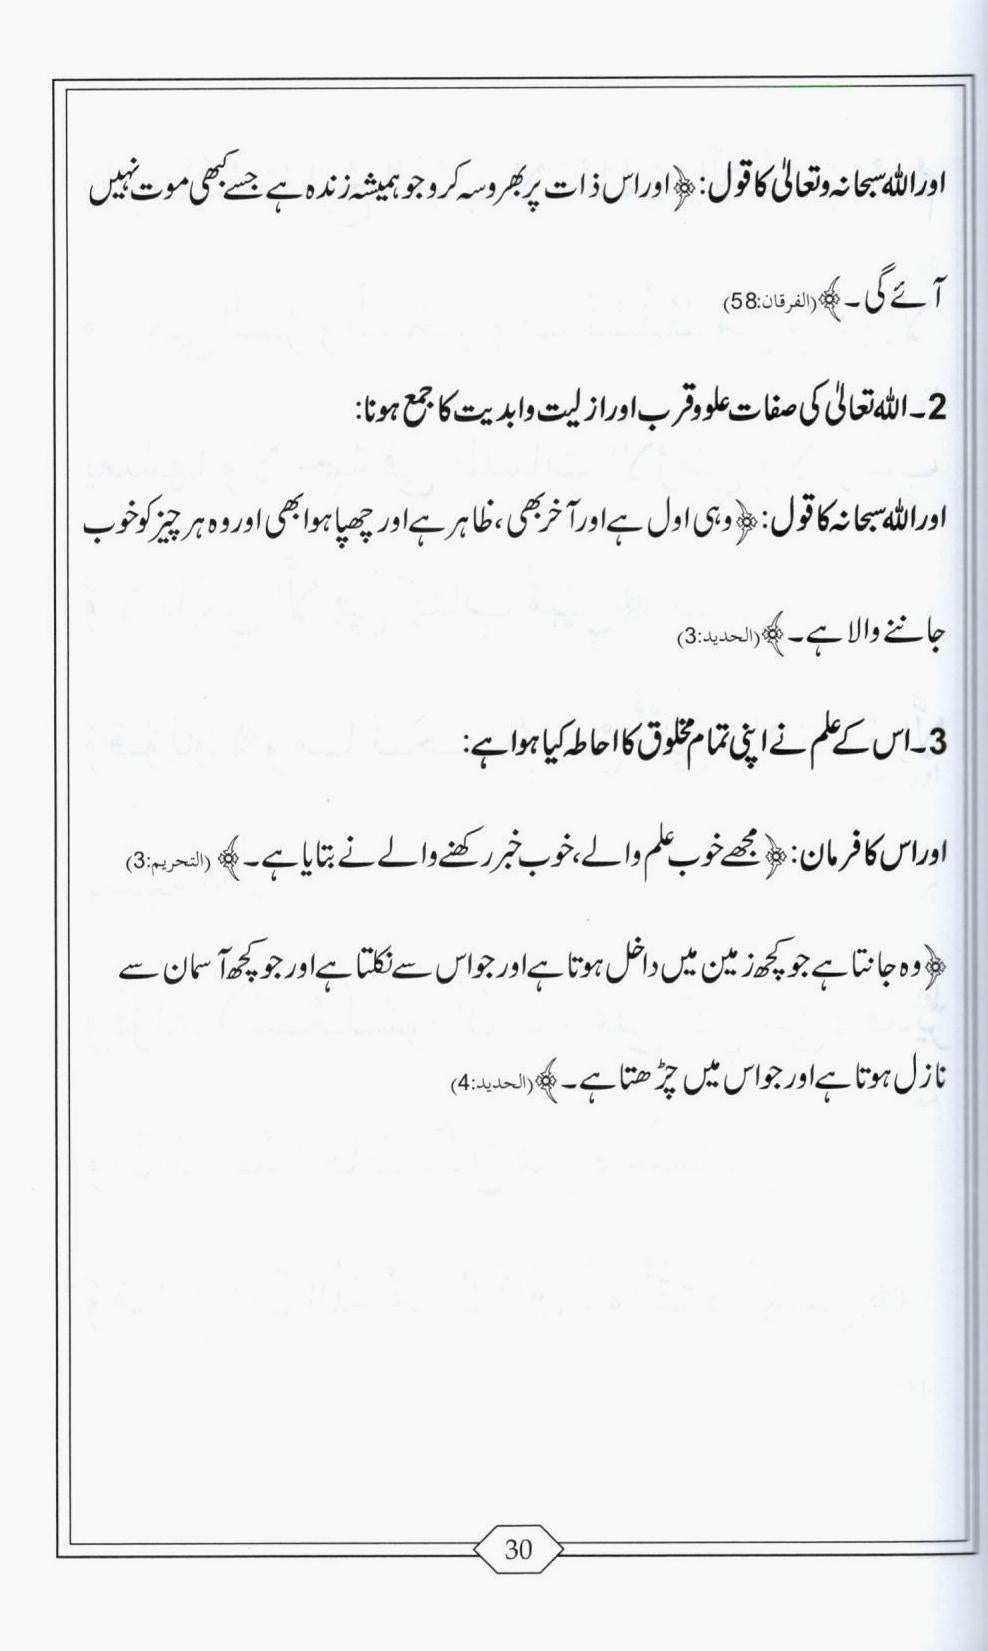 اور اللہ سبحانہ وتعالیٰ کا قول: ﴿اور اس ذات پر بھروسہ کرو جو ہمیشہ زندہ ہے جسے کبھی موت نہیں
آئے گی۔﴾ (الفرقان:58)
2۔ اللہ تعالیٰ کی صفات علو و قرب اور ازلیت وابدیت کا جمع ہونا:
اور اللہ سبحانہ کا قول: ﴿وہی اول ہے اور آخر بھی، ظاہر ہے اور چھپا ہوا بھی اور وہ ہر چیز کو خوب
جاننے والا ہے۔﴾ (الحدید:3)
3۔ اس کے علم نے اپنی تمام مخلوق کا احاطہ کیا ہوا ہے:
اور اس کا فرمان: ﴿مجھے خوب علم والے، خوب خبر رکھنے والے نے بتایا ہے۔﴾ (التحریم:3)
﴿وہ جانتا ہے جو کچھ زمین میں داخل ہوتا ہے اور جو اس سے نکلتا ہے اور جو کچھ آسمان سے
نازل ہوتا ہے اور جو اس میں چڑھتا ہے۔﴾ (الحدید:4)
30